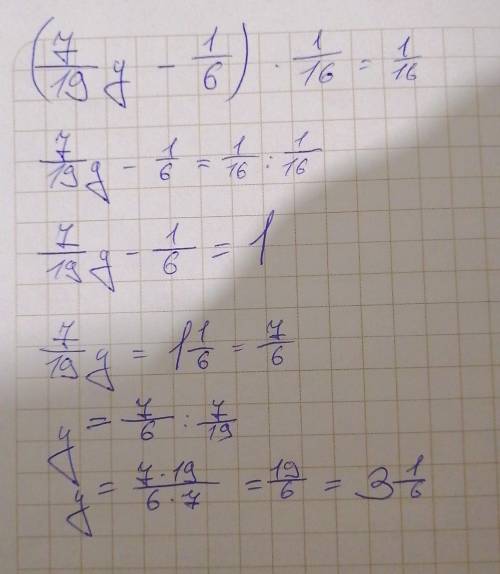 (7/19 y - 1/6) · 1/16 = 1/16
7/19 y - 1/6 = 1/16 : 1/16
7/19 y - 1/6 = 1
7/19 y = 1 1/6 = 7/6
y = 7/6 : 7/19
y = 7·19/6·7 = 19/6 = 3 1/6